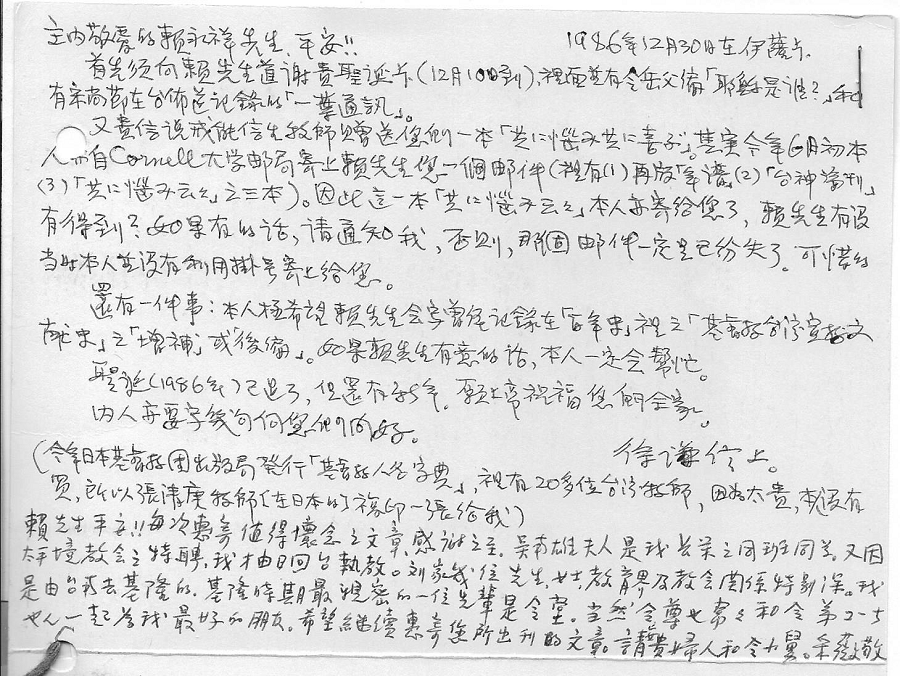 主内敬愛的賴永祥先生、平安!! 1986年12月30日在伊薩卡.
首先須向賴先生道謝貴聖诞卡(12月10日到),裡面並有令岳父備「耶穌是谁?」和
有宋尚節在台佈道記錄的「一葉通訊」。
又貴信说或能信生牧師贈送您们一本「共に悩み共に喜ぶ」。其実今年 月初本
人亦自Cornell大学邮局寄上賴先生您一個邮件(裡有(1)再版「年譜」(2)「台神 刊」
(3)「共に悩み云云」之三本)。因此這一本「共に悩み云云」本人亦寄給您了, 賴先生有没
有得到?如果有的话,请通知我,否則,那個邮件一定是已纷失了。可惜的
当时本人並没有利用掛号寄上给您。
還有一件事:本人極希望賴先生会字 記錄在「百年史」裡之「基督教台湾宣教文
献史」之「增補」或「後編」。如果賴先生有意的话,本人一定会幫忙。
聖诞(1986年)已过了,但還有 年。願上帝祝福您們全家。
内人亦要字幾句向您们问好。
徐谦信上。
(今年日本基督教团出版局発行「基督教人名字典」,裡有20多位台湾牧師,因为太貴,本 没有
買,所以張清庚牧師(在日本的)複印一張给我)
賴先生平安!!每次惠寄值得懷念之文章,感谢之至。吴 雄夫人是我 之同班同学。又因
本境教会之特聘,我才由日回台執教。刘家幾位先生,女士,教育界及教会関係特别深。我
是由台 去基隆的。基隆時期最親密的一位先輩是令堂。当然令尊也常々和令弟2-3
人一起 我最好的朋友。希望继续惠寄您所出刊的文章。請 貴婦人和令小舅。余